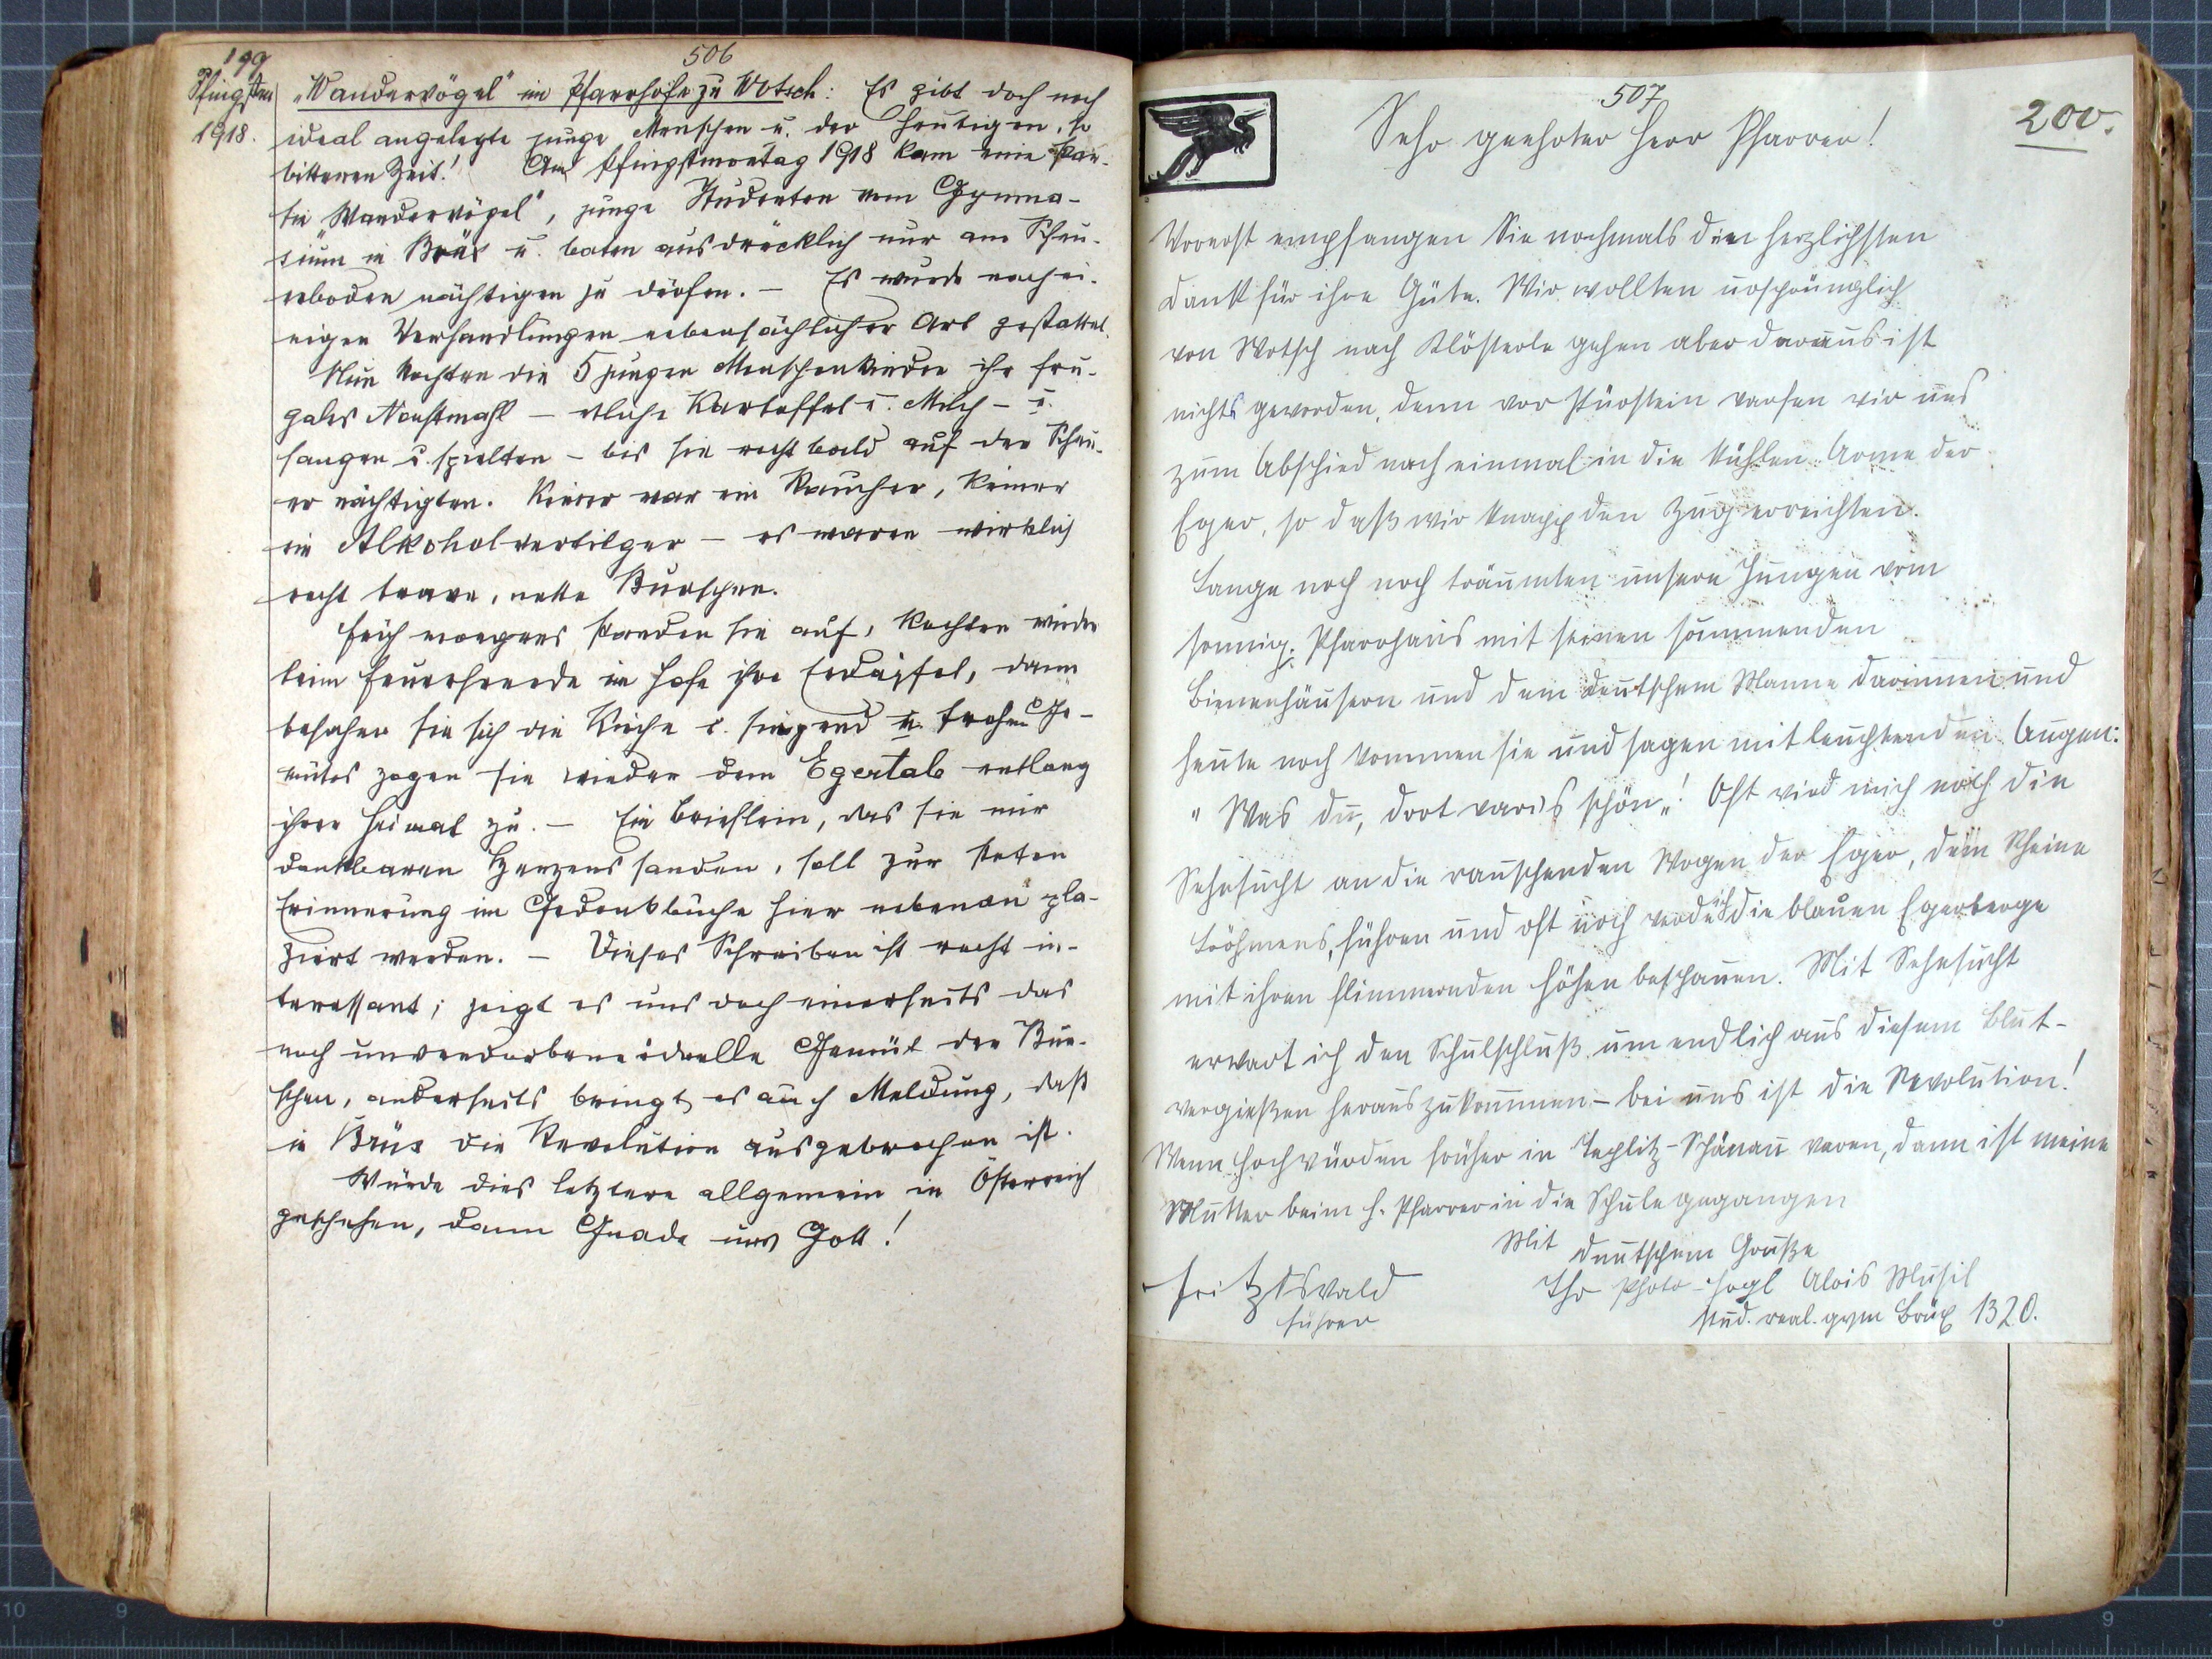 199
506
Pfingsten
1918.
„Wandervögel" im Pfarrhofe zu Wotsch: Es gibt doch noch
ideal angelegte junge Menschen u. der heutigen, so
bitteren Zeit! Am Pfingstmontag 1918 kam eine Par-
tie „Wandervögel", junge Studenten vom Gymna-
sium in Brüx u. baten ausdrücklich nur am Scheu-
erboden nächtigen zu dürfen. – Es wurde nach ei-
nigen Verhandlungen nebensächlicher Art gestattet.
Nun kochten die 5 jungen Menschenkinder ihr fru-
gales Nachtmahl – etliche Kartoffel u. Milch – u.
sangen u. spielten – bis sie recht bald auf der Scheu-
er nächtigten. Keiner war ein Raucher, keiner
ein Alkoholvertilger – es waren wirklich
recht brave, nette Burschen.
Früh morgens standen sie auf, kochten wieder
beim Feuerherde im Hofe ihre Erdäpfel, dann
besahen sie sich die Kirche u. singend u. frohen Ge-
mütes zogen sie wieder dem Egertale entlang
ihrer Heimat zu. – Ein Brieflein, das sie mir
dankbaren Herzens sanden, soll zur steten
Erinnerung im Gedenkbuche hier nebenan pla-
ziert werden. – Dieses Schreiben ist recht in-
teressant; zeigt es uns doch einerseits das
noch unverdorbene ideelle Gemüt der Bur-
schen, anderseits bringt es auch Meldung, daß
in Brüx die Revolution ausgebrochen ist.
Würde dies letztere allgemein in Österreich
geschehen, dann Gnade uns Gott!
507
200.
Sehr geehrter Herr Pfarrer!
Vorerst empfangen Sie nochmals den herzlichsten
Dank für ihre Güte. Wir wollten ursprünglich
von Wotsch nach Klösterle gehen aber daraus ist
nichts geworden, denn vor Pürstein warfen wir uns
zum Abschied noch einmal in die kühlen Arme der
Eger, so daß wir knapp den Zug erreichten.
Lange noch noch träumten unsere Jungen vom
sonnig. Pfarrhaus mit seinen summenden
Bienenhäusern und dem deutschem Manne darinnen und
heute noch kommen sie und sagen mit leuchtenden Augen:
„Was du, dort war's schön„! Oft wird mich noch die
Sehnsucht an die rauschenden Wogen der Eger, dem Rheine
Böhmens, führen und oft noch werde ich die blauen Egerberge
mit ihren flimmernden Höhen beschauen. Mit Sehnsucht
erwart ich den Schulschluß um endlich aus diesem Blut-
vergießen herauszukommen – bei uns ist die Revolution!
Wenn Hochwürden früher in Teplitz-Schönau waren, dann ist meine
Mutter beim H. Pfarrer in die Schule gegangen
Mit deutschem Gruße
Fritz Oswald
Führer
Ihr Photo- Alois Musil
stud. real. gym Brüx 1320.